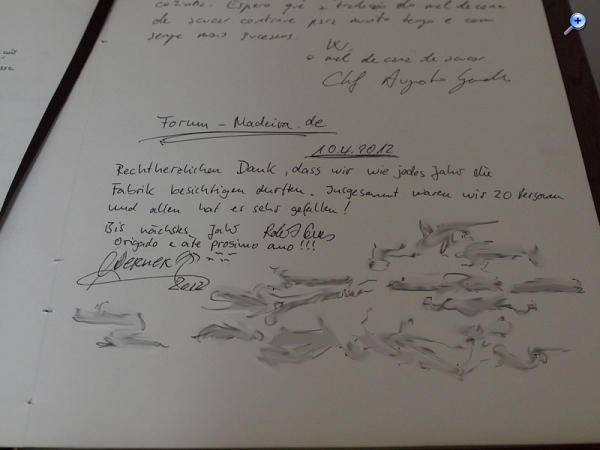 cozinha. Espero que a tradição do mel de cana
de sucar continue por muito tempo e com
mais sucessos.
o mel de cana de sucar
Chef Augusto
Forum - Madeira.de
10.4.2012
Rechtherzlichen Dank, dass wir wie jedes Jahr die
Fabrik besichtigen durften. Insgesamt waren wir 20 Personen
und allen hat es sehr gefallen!
Bis nächstes Jahr
origado e ate prosimo ano !!!
Werner
2012